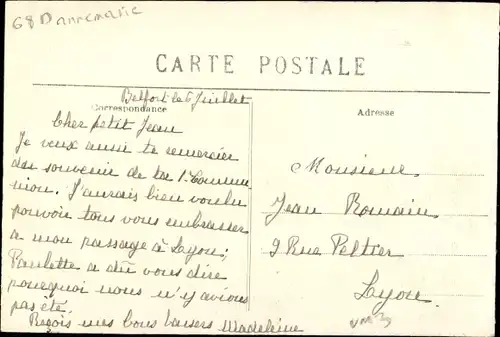 68 Dannemarie
CARTE POSTALE
Belfort le 6 Juillet
Correspondance
Cher petit Jean
Je veux aussi te remercier
du souvenir de ta 1. Commu
nion. J'aurais bien voulu
pouvoir tous vous embrasser
a mon passage à Lyon;
Paulette a dû vous dire
pourquoi nous n'y avions
pas été
Reçois mes bons baisers Madeleine
Adresse
Monsieur
Jean Romain
9 Rue Peltier
Lyon